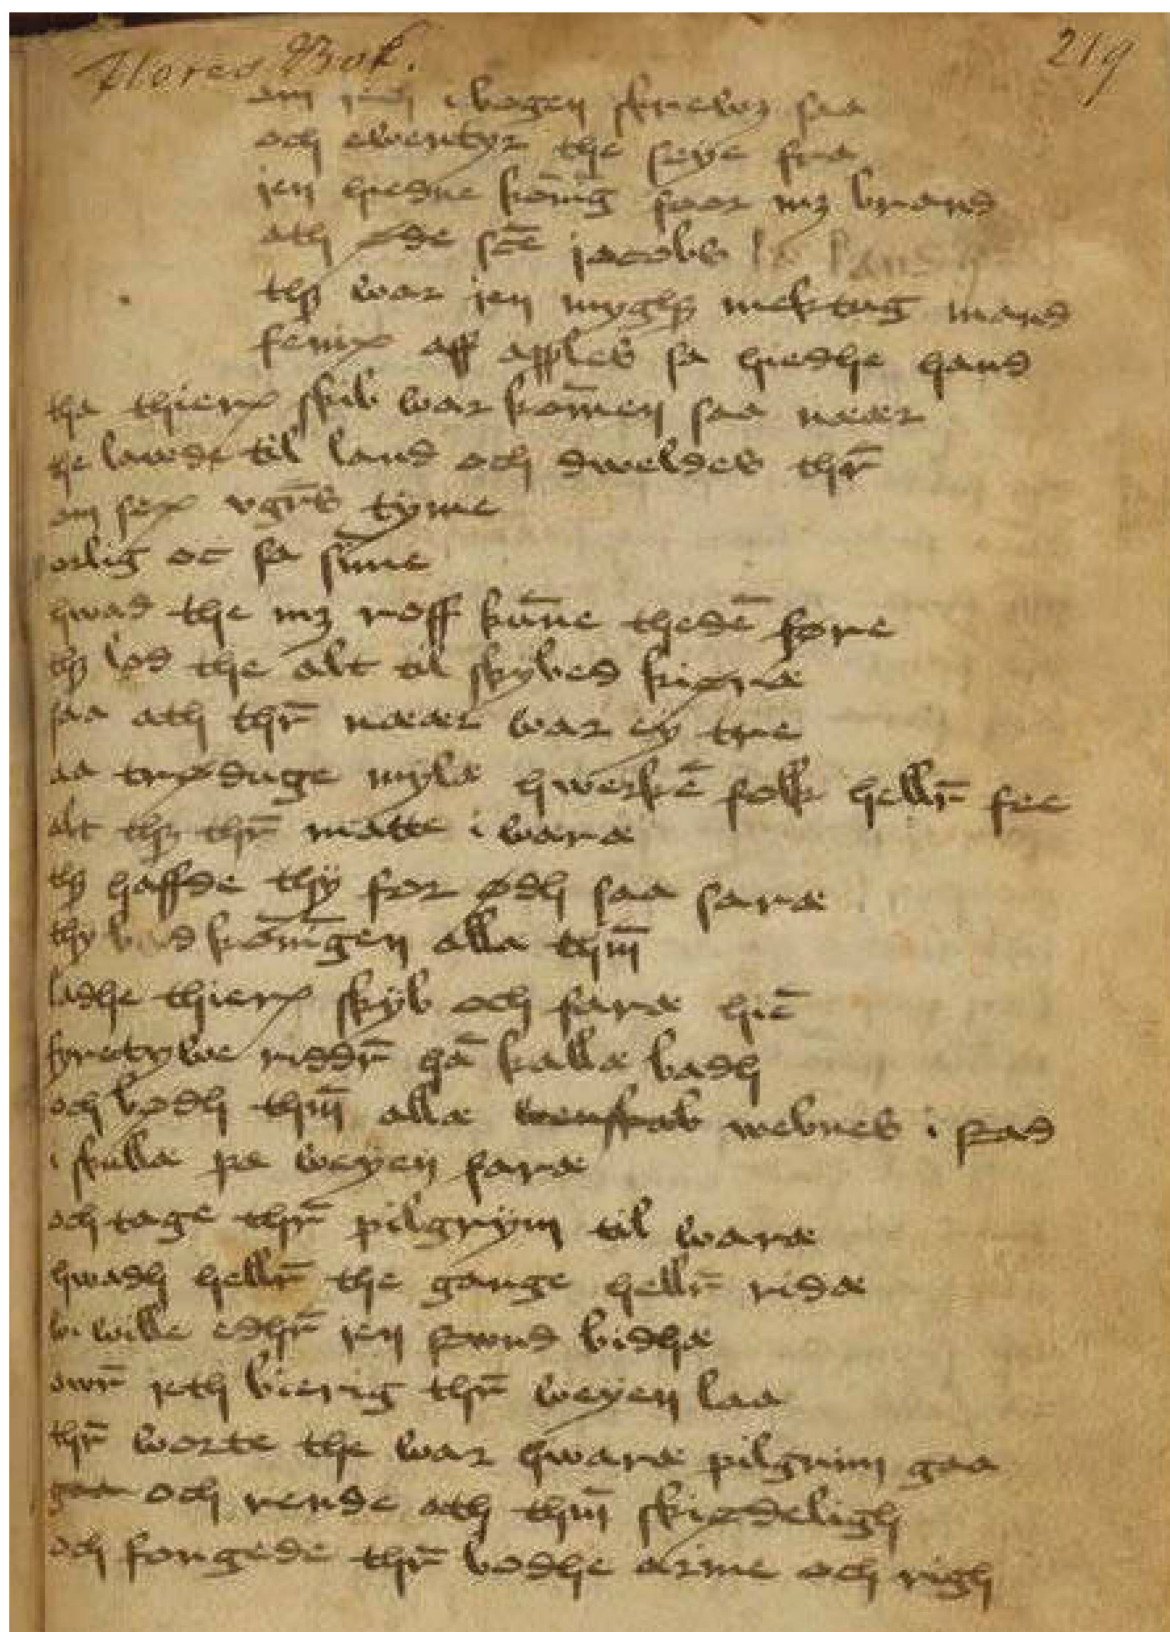 Flores Bok.
219
om i bogen skrewz saa
och ewentyr the seye fra
jen hiedne konig foor mz brand
ath øde scē jacobs land
thz war jen myghz mektug mand
fenix aff apples sa hiedhe hand
tha thierx skib war komen saa næær
the lawde til land och dweldes thr̄
om sex vgr̄s tyme
orlig oc sa sȳme
hwad the mz roff kūne thedē føre
thz lod the alt til skybed kiøræ
saa ath thr̄ nææer war ey tre
aa trøduge mylæ hwerkē folk hellr̄ fee
alt thz thr̄ matte i waræ
thz haffde thÿ for ødh saa saræ
thy konīgen alla thm̄
ladhe thierx skÿb och faræ hiē
fyretywe riddr̄ hā kallæ badh
och bødh thm̄ allæ webnes i stad
i skullæ pa weyen faræ
och tage thr̄ pilgrÿm til waræ
hwadh hellr̄ the gange hellr̄ ridæ
wi wille edhr̄ jen stwnd bidhæ
owr̄ jeth bierig thr̄ weyen laa
thr̄ worte the war hwaræ pilgrim gaa
gaa och rende ath thm̄ skiødeligh
och fongede thr̄ bodhe arme och righ